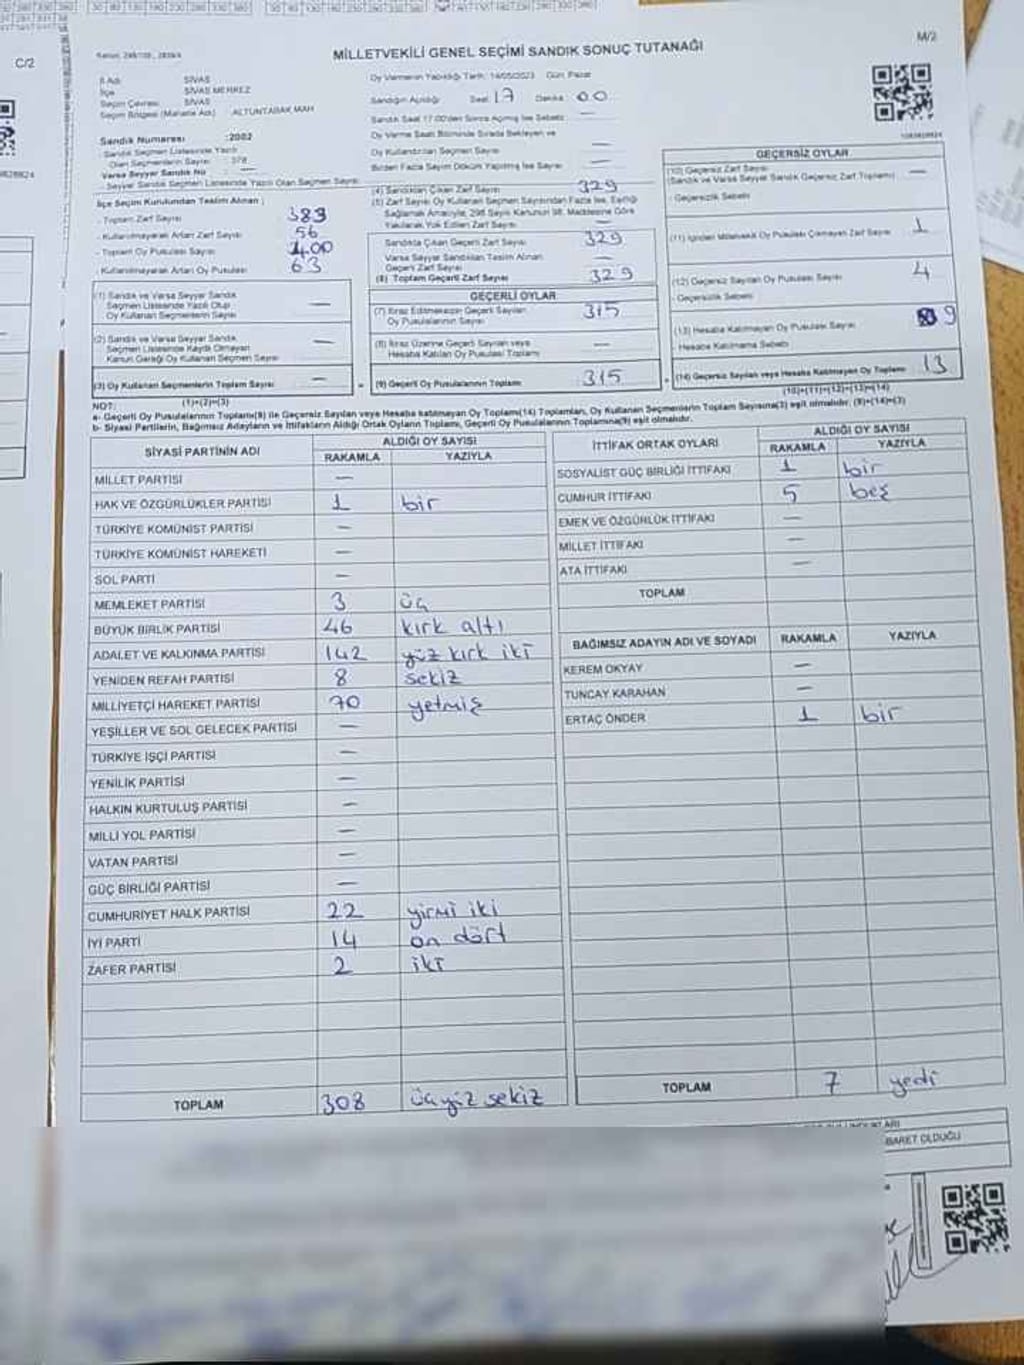 C/2
M/2
MİLLETVEKİLİ GENEL SEÇİMİ SANDIK SONUÇ TUTANAĞI
İl Adı : SİVAS
İlçe : SİVAS MERKEZ
Seçim Çevresi : SİVAS
Seçim Bölgesi (Mahalle Adı) : ALTUNTABAK MAH
Sandık Numarası : 2002
Sandık Seçmen Listesinde Yazılı
Olan Seçmenlerin Sayısı : 378
Varsa Seyyar Sandık No : —
Seyyar Sandık Seçmen Listesinde Yazılı Olan Seçmen Sayısı
Oy Vermenin Yapıldığı Tarih: 14/05/2023 Gün: Pazar
Sandığın Açıldığı Saat: 17 Dakika: 00
Sandık Saat 17.00'den Sonra Açılmış İse Sebebi: —
Oy Verme Saati Bitiminde Sırada Bekleyen ve
Oy Kullandırılan Seçmen Sayısı —
Birden Fazla Sayım Döküm Yapılmış İse Sayısı: —
İlçe Seçim Kurulundan Teslim Alınan ;
- Toplam Zarf Sayısı 383
- Kullanılmayarak Artan Zarf Sayısı 56
- Toplam Oy Pusulası Sayısı 400
- Kullanılmayarak Artan Oy Pusulası 63
(1) Sandık ve Varsa Seyyar Sandık
Seçmen Listesinde Yazılı Olup
Oy Kullanan Seçmenlerin Sayısı —
(2) Sandık ve Varsa Seyyar Sandık
Seçmen Listesinde Kaydı Olmayan
Kanun Gereği Oy Kullanan Seçmen Sayısı —
(3) Oy Kullanan Seçmenlerin Toplam Sayısı —
(1)+(2)=(3)
(4) Sandıktan Çıkan Zarf Sayısı 329
(5) Zarf Sayısı Oy Kullanan Seçmen Sayısından Fazla İse, Eşitliği
Sağlamak Amacıyla, 298 Sayılı Kanunun 98. Maddesine Göre
Yakılarak Yok Edilen Zarf Sayısı —
Sandıkta Çıkan Geçerli Zarf Sayısı 329
Varsa Seyyar Sandıktan Teslim Alınan
Geçerli Zarf Sayısı —
(6) Toplam Geçerli Zarf Sayısı 329
GEÇERLİ OYLAR
(7) İtiraz Edilmeksizin Geçerli Sayılan
Oy Pusulalarının Sayısı 315
(8) İtiraz Üzerine Geçerli Sayılan veya
Hesaba Katılan Oy Pusulası Toplamı —
(9) Geçerli Oy Pusulalarının Toplamı 315
GEÇERSİZ OYLAR
(10) Geçersiz Zarf Sayısı
(Sandık ve Varsa Seyyar Sandık Geçersiz Zarf Toplamı) —
- Geçersizlik Sebebi
(11) İçinden Milletvekili Oy Pusulası Çıkmayan Zarf Sayısı 1
(12) Geçersiz Sayılan Oy Pusulası Sayısı 4
- Geçersizlik Sebebi
(13) Hesaba Katılmayan Oy Pusulası Sayısı 9
- Hesaba Katılmama Sebebi
(14) Geçersiz Sayılan veya Hesaba Katılmayan Oy Toplamı 13
(10)+(11)+(12)+(13)=(14)
NOT:
a- Geçerli Oy Pusulalarının Toplamı(9) ile Geçersiz Sayılan veya Hesaba katılmayan Oy Toplamı(14) Toplamları, Oy Kullanan Seçmenlerin Toplam Sayısına(3) eşit olmalıdır. (9)+(14)=(3)
b- Siyasi Partilerin, Bağımsız Adayların ve İttifakların Aldığı Ortak Oyların Toplamı, Geçerli Oy Pusulalarının Toplamına(9) eşit olmalıdır.
SİYASİ PARTİNİN ADI ALDIĞI OY SAYISI
RAKAMLA YAZIYLA
MİLLET PARTİSİ —
HAK VE ÖZGÜRLÜKLER PARTİSİ 1 bir
TÜRKİYE KOMÜNİST PARTİSİ —
TÜRKİYE KOMÜNİST HAREKETİ —
SOL PARTİ —
MEMLEKET PARTİSİ 3 üç
BÜYÜK BİRLİK PARTİSİ 46 kırk altı
ADALET VE KALKINMA PARTİSİ 142 yüz kırk iki
YENİDEN REFAH PARTİSİ 8 sekiz
MİLLİYETÇİ HAREKET PARTİSİ 70 yetmiş
YEŞİLLER VE SOL GELECEK PARTİSİ —
TÜRKİYE İŞÇİ PARTİSİ —
YENİLİK PARTİSİ —
HALKIN KURTULUŞ PARTİSİ —
MİLLİ YOL PARTİSİ —
VATAN PARTİSİ —
GÜÇ BİRLİĞİ PARTİSİ —
CUMHURİYET HALK PARTİSİ 22 yirmi iki
İYİ PARTİ 14 on dört
ZAFER PARTİSİ 2 iki
TOPLAM 308 üçyüz sekiz
İTTİFAK ORTAK OYLARI ALDIĞI OY SAYISI
RAKAMLA YAZIYLA
SOSYALİST GÜÇ BİRLİĞİ İTTİFAKI 1 bir
CUMHUR İTTİFAKI 5 beş
EMEK VE ÖZGÜRLÜK İTTİFAKI —
MİLLET İTTİFAKI —
ATA İTTİFAKI —
TOPLAM
BAĞIMSIZ ADAYIN ADI VE SOYADI RAKAMLA YAZIYLA
KEREM OKYAY —
TUNCAY KARAHAN —
ERTAÇ ÖNDER 1 bir
TOPLAM 7 yedi
BARET OLDUĞU